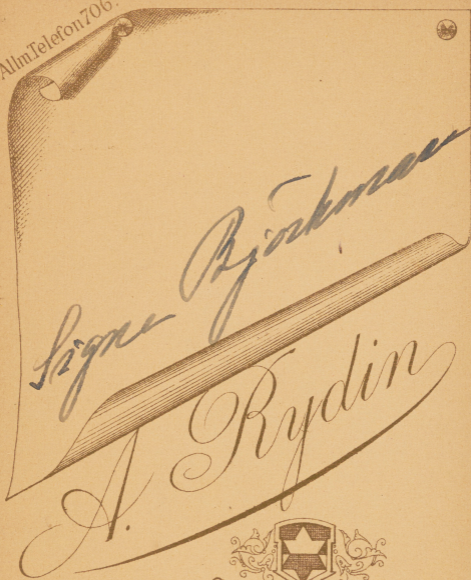 Allm Telefon 706.
Signe Björkman
A. Rydin